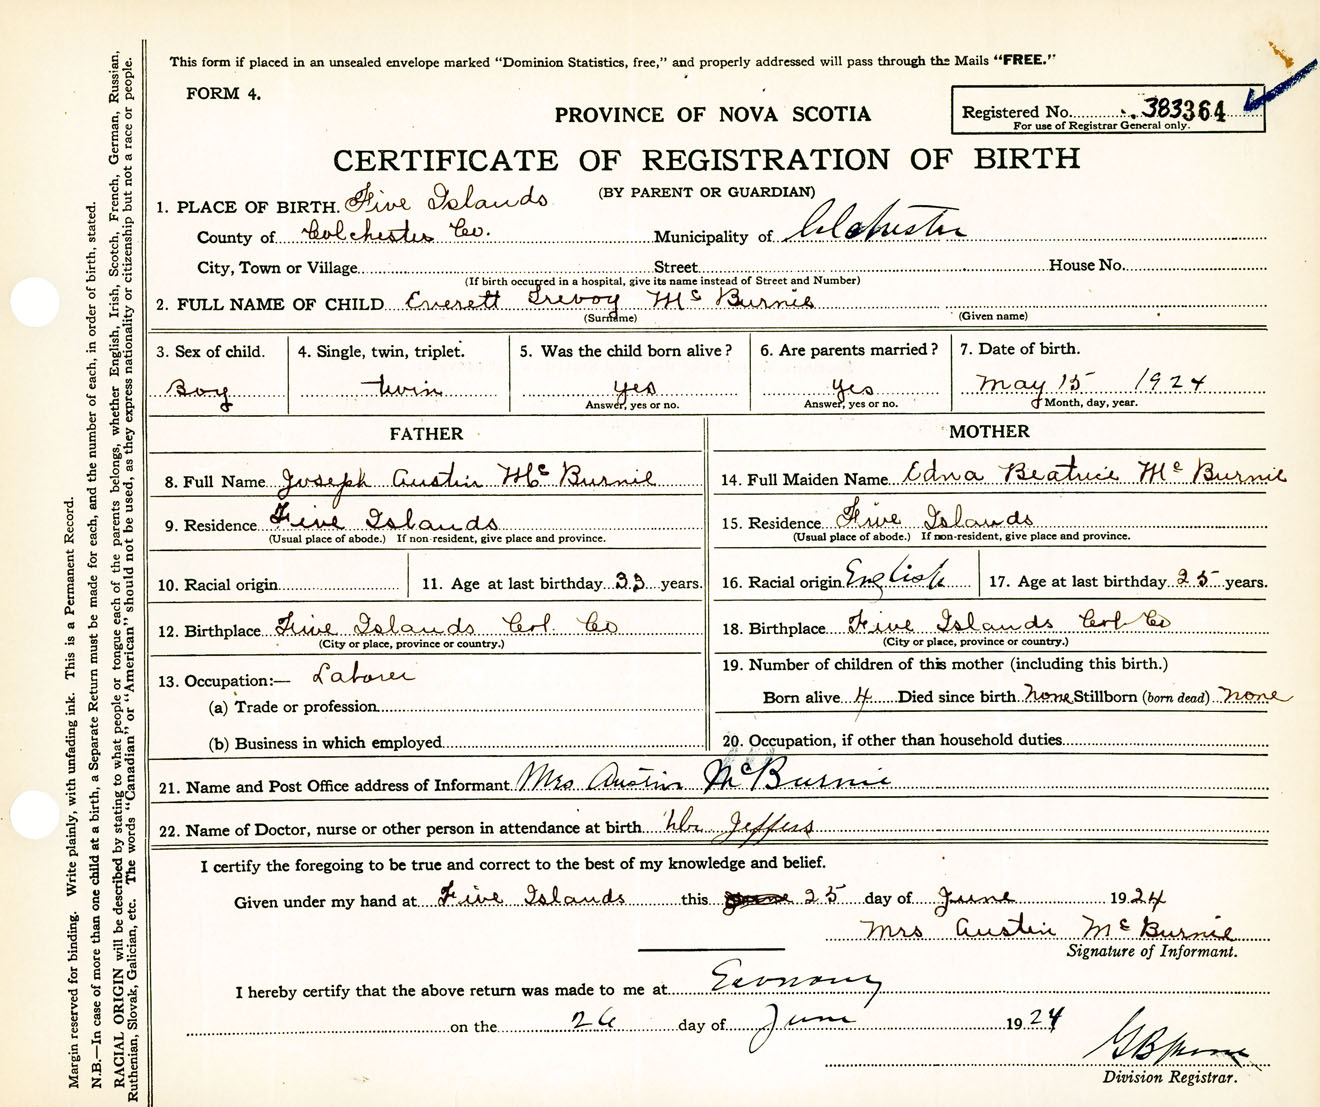 This form if placed in an unsealed envelope marked "Dominion Statistics, free," and properly addressed will pass through the Mails "FREE."
FORM 4.
PROVINCE OF NOVA SCOTIA
Registered No. 383364
For use of Registrar General only.
CERTIFICATE OF REGISTRATION OF BIRTH
(BY PARENT OR GUARDIAN)
1. PLACE OF BIRTH. Five Islands
County of Colchester Co. Municipality of Colchester
City, Town or Village Street House No.
(If birth occurred in a hospital, give its name instead of Street and Number)
2. FULL NAME OF CHILD Everett Trevoy Mc Burnie
(Surname) (Given name)
3. Sex of child. 4. Single, twin, triplet. 5. Was the child born alive? 6. Are parents married? 7. Date of birth.
Boy twin yes yes May 15 1924
Answer, yes or no. Answer, yes or no. Month, day, year.
FATHER MOTHER
8. Full Name Joseph Austin Mc Burnie 14. Full Maiden Name Edna Beatrice Mc Burnie
9. Residence Five Islands 15. Residence Five Islands
(Usual place of abode.) If non-resident, give place and province. (Usual place of abode.) If non-resident, give place and province.
10. Racial origin 11. Age at last birthday 33 years. 16. Racial origin English 17. Age at last birthday 25 years.
12. Birthplace Five Islands Col. Co 18. Birthplace Five Islands Col Co
(City or place, province or country.) (City or place, province or country.)
13. Occupation:— Laborer 19. Number of children of this mother (including this birth.)
(a) Trade or profession Born alive 4 Died since birth none Stillborn (born dead) none
(b) Business in which employed 20. Occupation, if other than household duties
21. Name and Post Office address of Informant Mrs Austin McBurnie
22. Name of Doctor, nurse or other person in attendance at birth Dr. Jeffers
I certify the foregoing to be true and correct to the best of my knowledge and belief.
Given under my hand at Five Islands this 25 day of June 1924
Mrs Austin Mc Burnie
Signature of Informant.
I hereby certify that the above return was made to me at Economy
on the 26 day of June 1924
Division Registrar.
Margin reserved for binding. Write plainly, with unfading ink. This is a Permanent Record.
N.B.—In case of more than one child at a birth, a Separate Return must be made for each, and the number of each, in order of birth, stated.
RACIAL ORIGIN will be described by stating to what people or tongue each of the parents belongs, whether English, Irish, Scotch, French, German, Russian,
Ruthenian, Slovak, Galician, etc. The words "Canadian" or "American" should not be used, as they express nationality or citizenship but not a race or people.